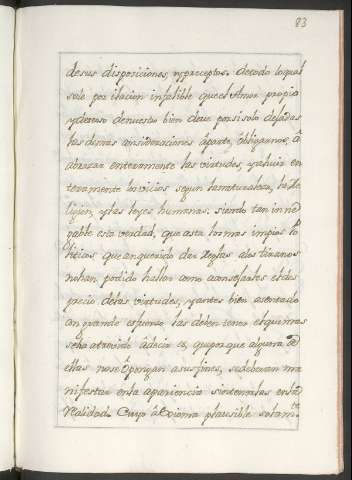 83
desus disposiciones, y preceptos. detodo loqual
solo por ilacion infalible queel Amor propio
y deseo denuestro bien deve por si solo dejadas
las demas consideraciones áparte, óbligarnos, â
abrazar enteramente las virtudes, y huir en
teramente los vicios segun lanaturaleza, la Re
ligion, y las leyes humanas. siendo tan inne
gable esta verdad, que asta los mas impios Po
liticos que anquerido dar Reglas alos tiranos
nohan podido hallar como aconsejarles el des
precio delas virtudes, y antes bien asentado
congrande esfuerzo las deben tener elquemas
seha atrevido âdecir es, que porque alguna de
ellas nose ôpongan asusfines, sedeberan ma
nifestar enla apariencia sintenerlas enla
Realidad. Cuyo âxioma plausible solam.te